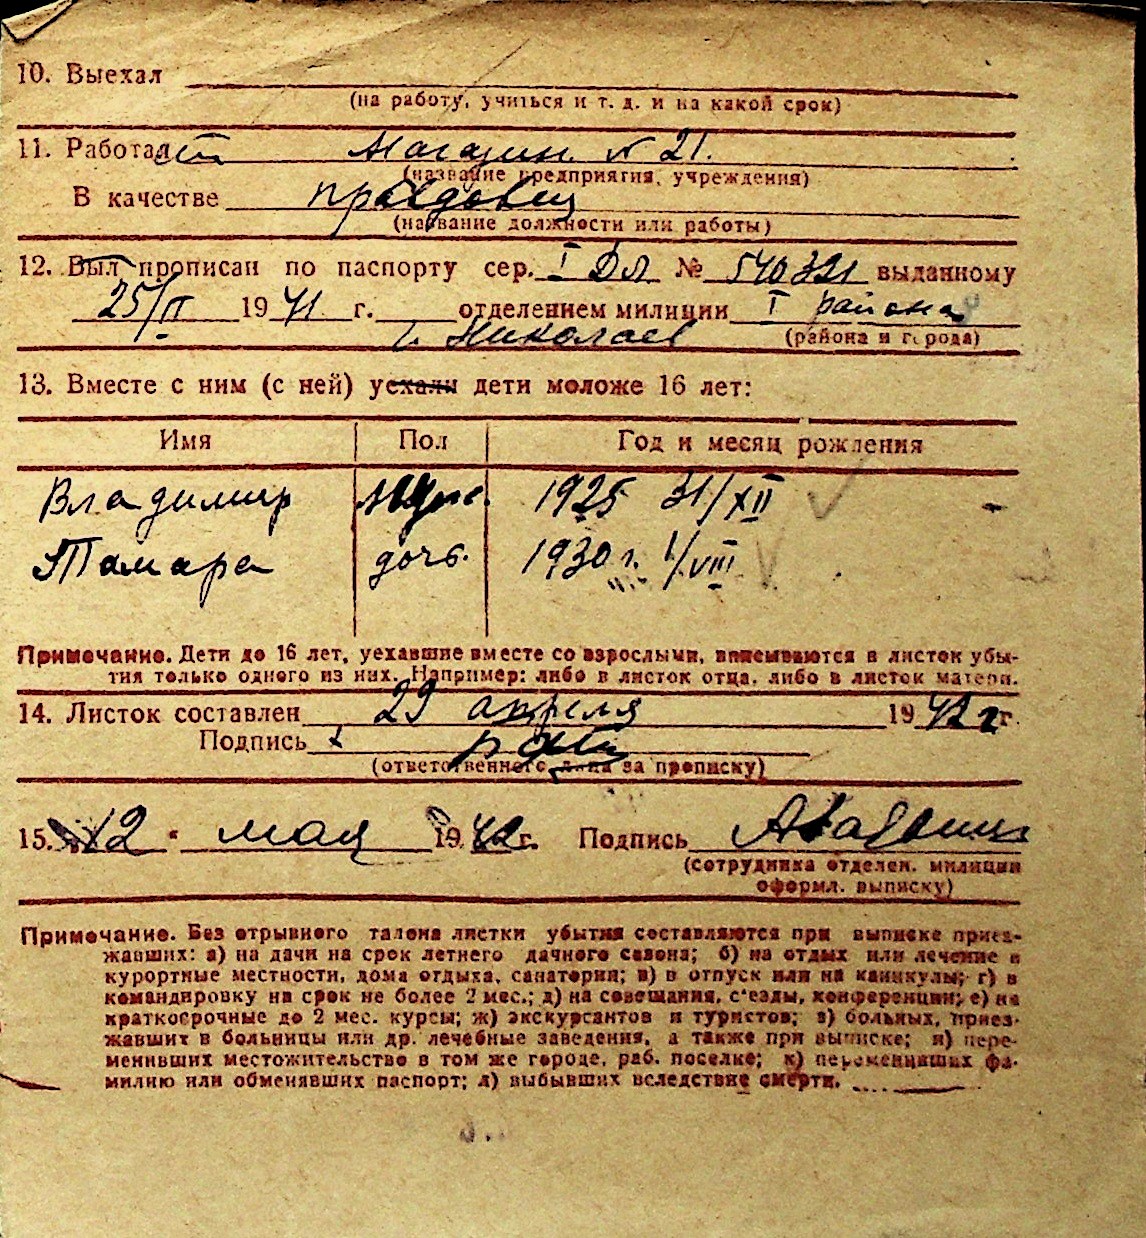 10. Выехал
(на работу, учиться и т. д. и на какой срок)
11. Работает Магазин. № 21.
(название предприятия, учреждения)
В качестве
(название должности или работы)
12. Был прописан по паспорту сер. I ДЛ № 540321 выданному
25/II 1941 г. отделением милиции I района
г. Николаев (района и города)
13. Вместе с ним (с ней) уехали дети моложе 16 лет:
Имя Пол Год и месяц рождения
Владимир 1925 31/XII
Тамара дочь. 1930 г. 1/VIII
Примечание. Дети до 16 лет, уехавшие вместе со взрослыми, вписываются в листок убы-
тия только одного из них. Например: либо в листок отца, либо в листок матери.
14. Листок составлен 29 апреля 1942 г.
Подпись
(ответственного лица за прописку)
15. 12 " мая 1942 г. Подпись
(сотрудника отделен. милиции
оформл. выписку)
Примечание. Без отрывного талона листки убытия составляются при выписке приез-
жавших: а) на дачи на срок летнего дачного сезона; б) на отдых или лечение в
курортные местности, дома отдыха, санатории; в) в отпуск или на каникулы; г) в
командировку на срок не более 2 мес.; д) на совещания, с'езды, конференции; е) на
краткосрочные до 2 мес. курсы; ж) экскурсантов и туристов; з) больных, приез-
жавших в больницы или др. лечебные заведения, а также при выписке; и) пере-
менивших местожительство в том же городе, раб. поселке; к) переменивших фа-
милию или обменявших паспорт; л) выбывших вследствие смерти.